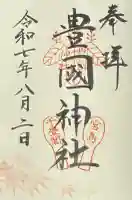 奉拝
豊國神社
令和七年八月二日